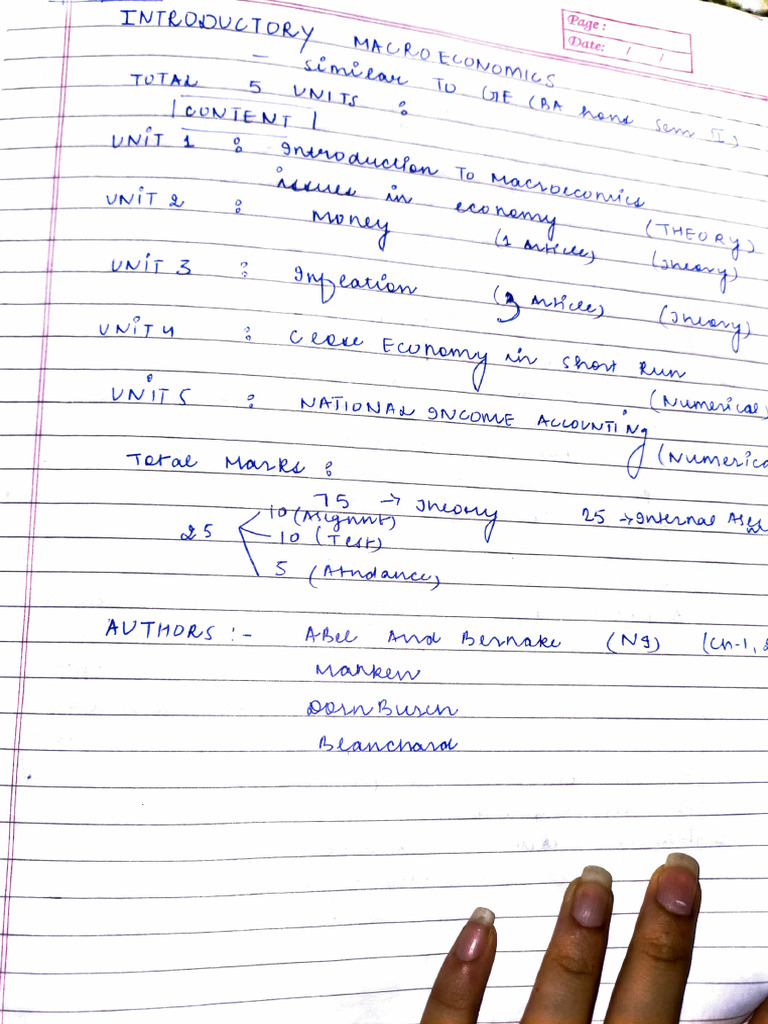 Page:
Date: / /
INTRODUCTORY MACROECONOMICS
- Similar To GE (BA hons Sem II)
TOTAL 5 UNITS :
| CONTENT |
UNIT 1 : Introduction To Macroecomics
issues in economy (THEORY)
UNIT 2 : Money (1 Article) (Theory)
UNIT 3 : Inflation (3 Article) (Theory)
UNIT 4 : Close Economy in Short Run
(Numerical)
UNIT 5 : NATIONAL INCOME ACCOUNTING
(Numerica
Total Marks :
75 → Theory 25 → Internal Asses
25 10 (Asignmt)
10 (Test)
5 (Atndance)
AUTHORS :- ABel And Bernake (N9) (Ch-1,
Mankew
DornBusch
Blanchard